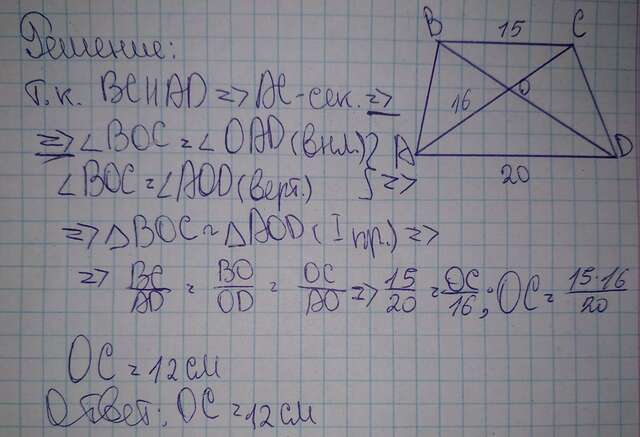 Решение:
Т.к. BC||AD => AC-сек. =>
=> ∠BOC = ∠OAD (вн.л.) }
∠BOC = ∠AOD (верт.) } =>
=> △BOC ~ △AOD (I пр.) =>
=> BC/AD = BO/OD = OC/AO => 15/20 = OC/16; OC = 15·16/20
OC = 12 см
Ответ: OC = 12 см
B 15 C
16 O
A D
20